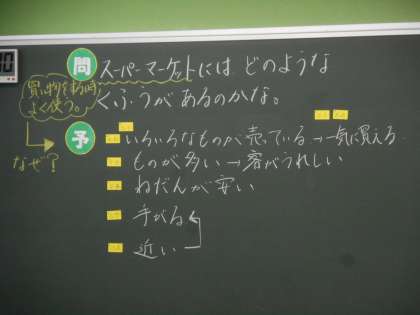 問 スーパーマーケットには どのような
くふうが あるのかな。
買い物をする時
よく使う。
なぜ?
予 いろいろなものが 売っている → 一気に買える
ものが多い → 客がうれしい
ねだんが 安い
手がる
近い